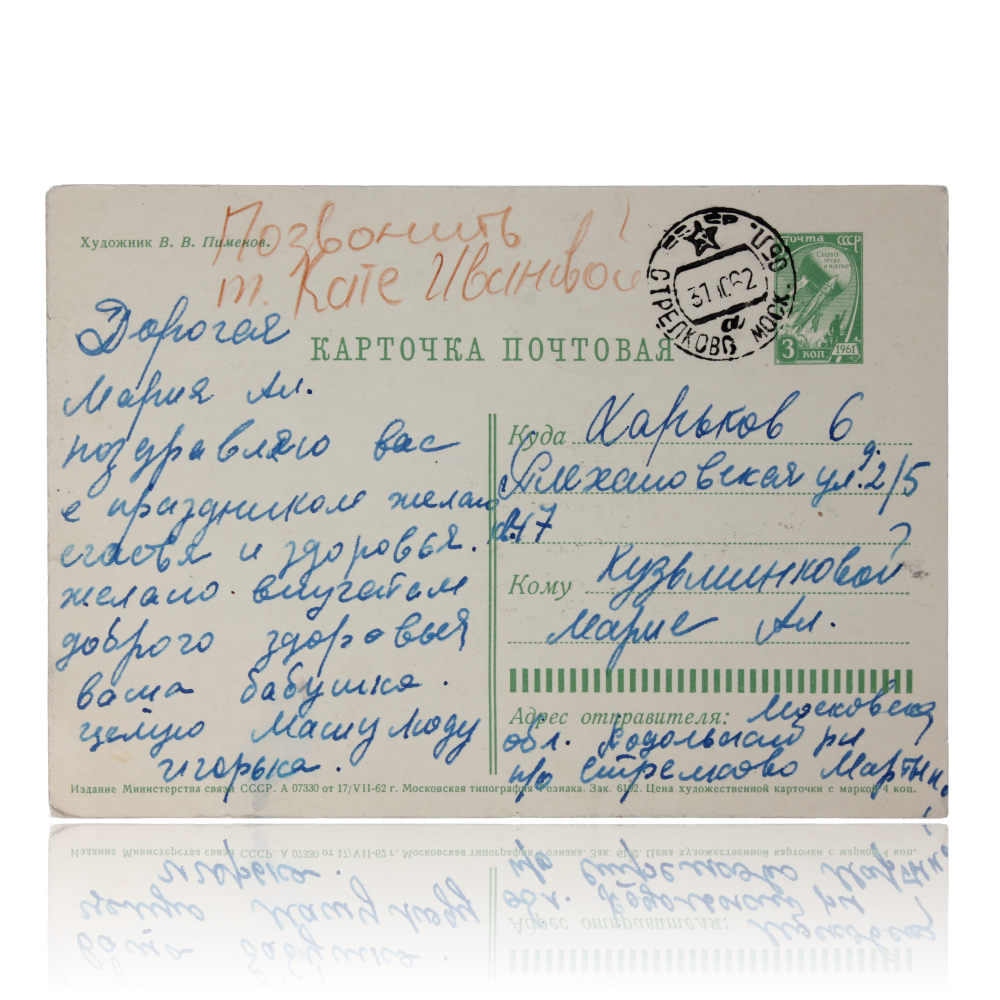 Художник В. В. Пименов.
Позвонить
т. Кате Ивановой!
СССР
СТРЕЛКОВО МОСК. ОБЛ.
311062
а
почта СССР
Слава
труду
и науке
3 коп
1961
КАРТОЧКА ПОЧТОВАЯ
Дорогая
Мария Ал.
поздравляю вас
с праздником желаю
счастья и здоровья.
желаю внучатам
доброго здоровья
ваша бабушка.
целую Машу Люду
Игорька.
Куда Харьков 6
Плехановская ул. д. 2/5
кв. 17
Кому Кузьминковой
Марие Ал.
Адрес отправителя: Московская
обл. Подольский рн
п/о Стрелково Мартын
Издание Министерства связи СССР. А 07330 от 17/VII-62 г. Московская типография Гознака. Зак. 6192. Цена художественной карточки с маркой 4 коп.